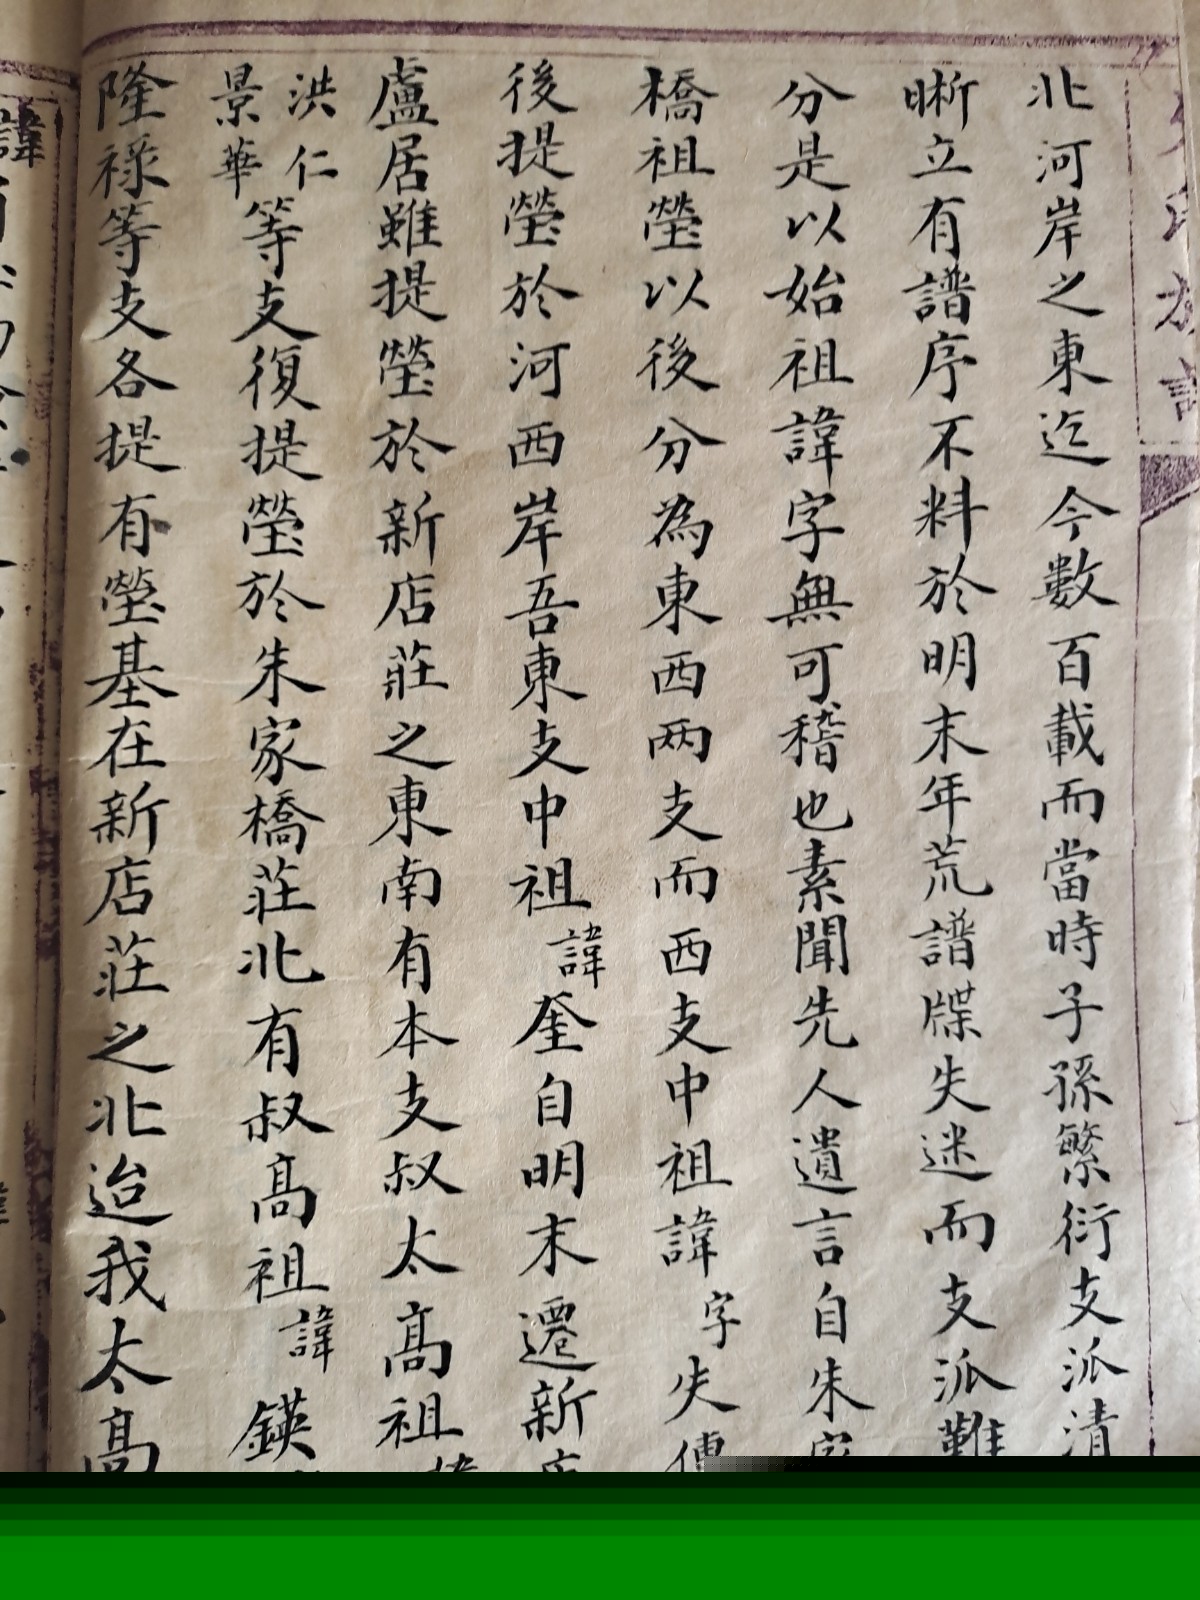 北河岸之東迄今數百載而當時子孫繁衍支派清
晰立有譜序不料於明末年荒譜牒失迷而支派難
分是以始祖諱字無可稽也素聞先人遺言自朱家
橋祖塋以後分為東西两支而西支中祖諱字失傳
後提塋於河西岸吾東支中祖諱奎自明末遷新店
盧居雖提塋於新店莊之東南有本支叔太高祖諱
洪仁
景華等支復提塋於朱家橋莊北有叔高祖諱鍈
隆祿等支各提有塋基在新店莊之北迨我太高